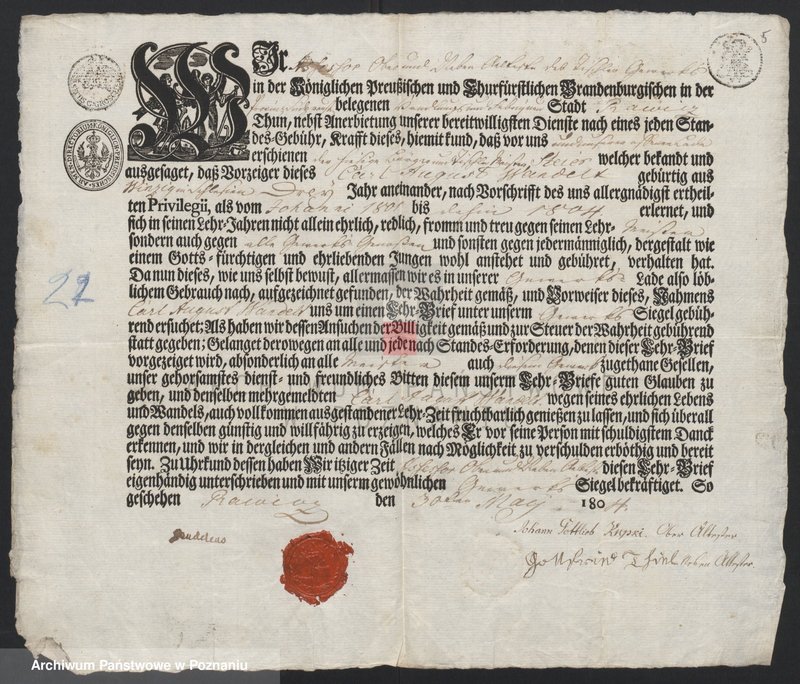 5
Wir
in der Königlichen Preußischen und Churfürstlichen Brandenburgischen in der
belegenen Stadt Rawicz
Thun, nebst Anerbietung unserer bereitwilligsten Dienste nach eines jeden Stan-
des-Gebühr, Krafft dieses, hiemit kund, daß vor uns
erschienen welcher bekandt und
ausgesaget, daß Vorzeiger dieses Carl August Wandelt gebürtig aus
Drey Jahr aneinander, nach Vorschrifft des uns allergnädigst ertheil-
ten Privilegii, als vom Johanni 1801 bis dahin 1804 erlernet, und
sich in seinen Lehr-Jahren nicht allein ehrlich, redlich, fromm und treu gegen seinen Lehr-
sondern auch gegen alle Gewerks Genossen und sonsten gegen jedermänniglich, dergestalt wie
einem Gotts-fürchtigen und ehrliebenden Jungen wohl anstehet und gebühret, verhalten hat.
Da nun dieses, wie uns selbst bewust, allermassen wir es in unserer Gewerks Lade also löb-
lichem Gebrauch nach, aufgezeichnet gefunden, der Wahrheit gemäß, und Vorweiser dieses, Nahmens
Carl August Wandelt uns um einen Lehr-Brief unter unserm Gewerks Siegel gebüh-
rend ersuchet: Als haben wir dessen Ansuchen der Billigkeit gemäß und zur Steuer der Wahrheit gebührend
statt gegeben; Gelanget derowegen an alle und jede nach Standes-Erforderung, denen dieser Lehr-Brief
vorgezeiget wird, absonderlich an alle Meister auch zugethane Gesellen,
unser gehorsamstes dienst- und freundliches Bitten diesem unserm Lehr-Briefe guten Glauben zu
geben, und denselben mehrgemeldten Carl August Wandelt wegen seines ehrlichen Lebens
und Wandels, auch vollkommen ausgestandener Lehr-Zeit fruchtbarlich genießen zu lassen, und sich überall
gegen denselben günstig und willfährig zu erzeigen, welches Er vor seine Person mit schuldigstem Danck
erkennen, und wir in dergleichen und andern Fällen nach Möglichkeit zu verschulden erböthig und bereit
seyn. Zu Uhrkund dessen haben Wir itziger Zeit diesen Lehr-Brief
eigenhändig unterschrieben und mit unserm gewöhnlichen Gewerks Siegel bekräftiget. So
geschehen Rawicz den 30ten May 1804
Johann Gottlieb Ober Ältester
Gottfried Thiel Neben Ältester
Archiwum Państwowe w Poznaniu